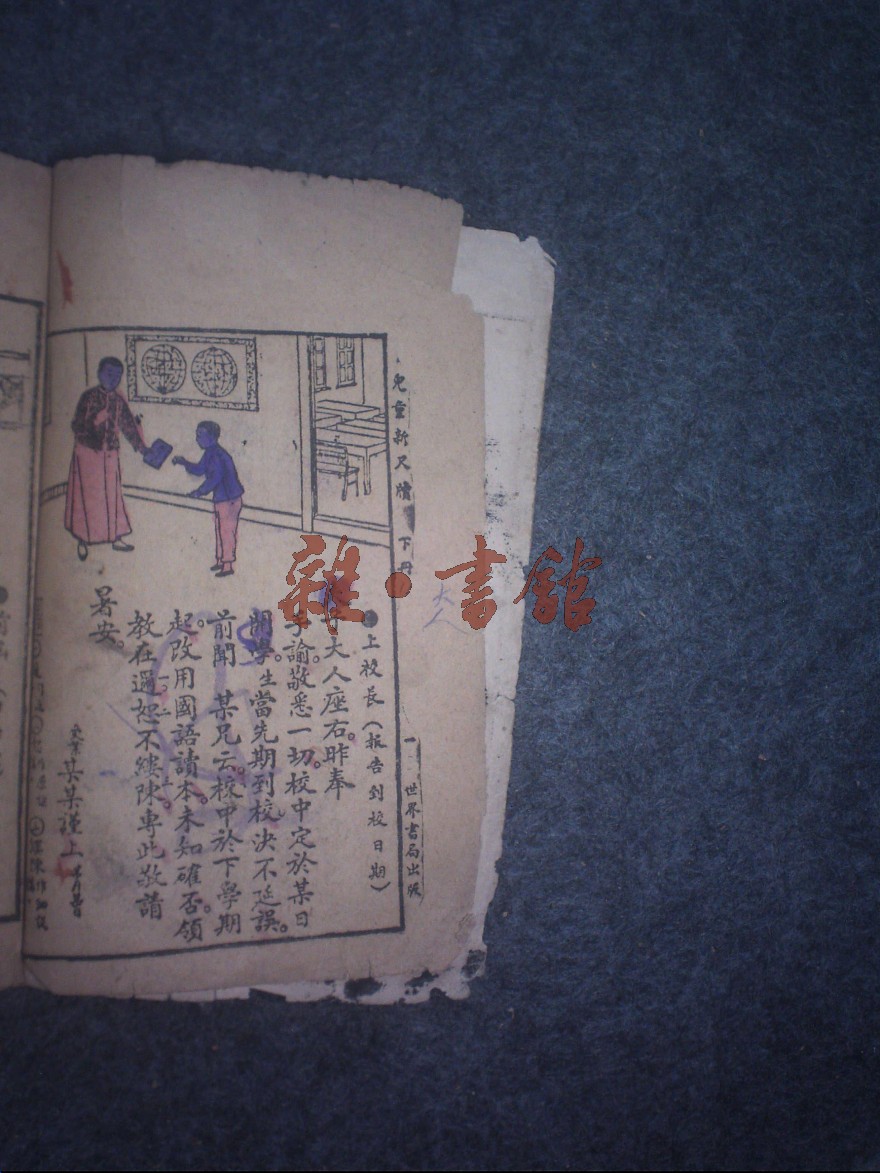 兒童新尺牘 下冊
一 世界書局出版
上校長(报告到校日期)
大人座右。昨奉
手諭。敬悉一切。校中定於某日
開學。生當先期到校。決不延誤。
前聞 某兄云。校中於下學期
起。改用國語讀本。未知確否。領
教在邇。恕不縷陳。專此敬請
暑安。
某某謹上
雜·書館